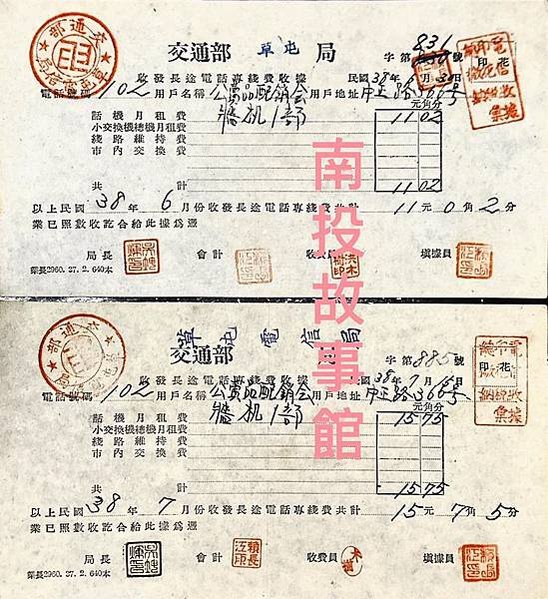 交通部 草屯 局
字 第 831 號
收發長途電話專綫費收據 民國38年6月30日
電話號碼 102 用戶名稱 公賣品配銷会 用戶地址 中正路366号
牆机1部
元角分
話機月租費 1102
小交換機總機月租費
綫路維持費
市內交換費
共計 1102
以上民國38年6月份收發長途電話專綫費共計11元0角2分
業已照數收訖合給此據爲憑
局長 會計 收費員 填據員
探長2960. 37. 2. 640本
南投故事館
草屯電信局
交通部
字第885號
收發長途電話專綫費收據 民國38年7月
電話號碼 102 用戶名稱 公賣品配銷会 用戶地址 中正路366号
牆机1部
元角分
話機月租費 1575
小交換機總機月租費
綫路維持費
市內交換費
共計 1575
以上民國38年7月份收發長途電話專綫費共計15元7角5分
業已照數收訖合給此據爲憑
局長 會計 收費員 填據員
探長2960. 37. 2. 640本